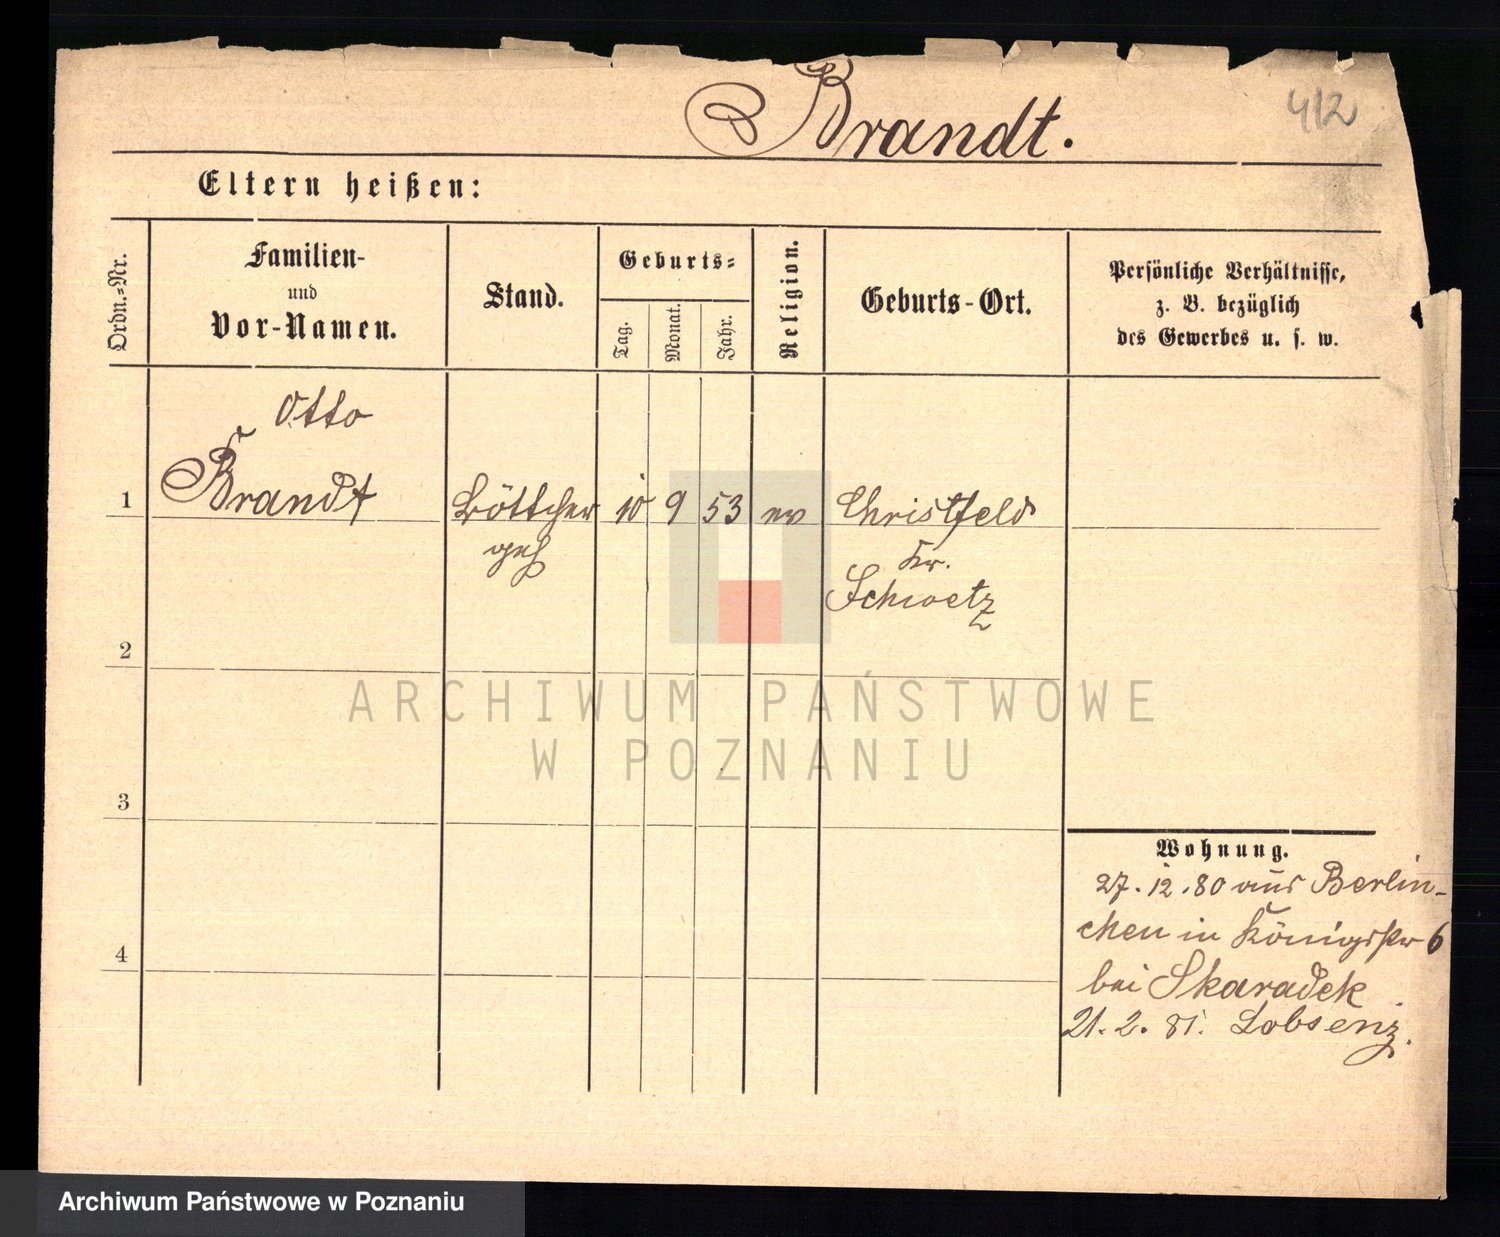 Brandt.
412
Eltern heißen:
Ordn.-Nr.
Familien-
und
Vor-Namen.
Stand.
Geburts-
Tag.
Monat.
Jahr.
Religion.
Geburts-Ort.
Persönliche Verhältnisse,
z. B. bezüglich
des Gewerbes u. s. w.
Otto
1 Brandt Böttcher 10 9 53 ev Christfeld
geh
Kr.
Schwetz
2
ARCHIWUM PAŃSTWOWE
W POZNANIU
3
Wohnung.
27.12.80 aus Berlin-
chen in Königstr 6
bei Skaradek
21.2.81. Lobsenz.
4
Archiwum Państwowe w Poznaniu